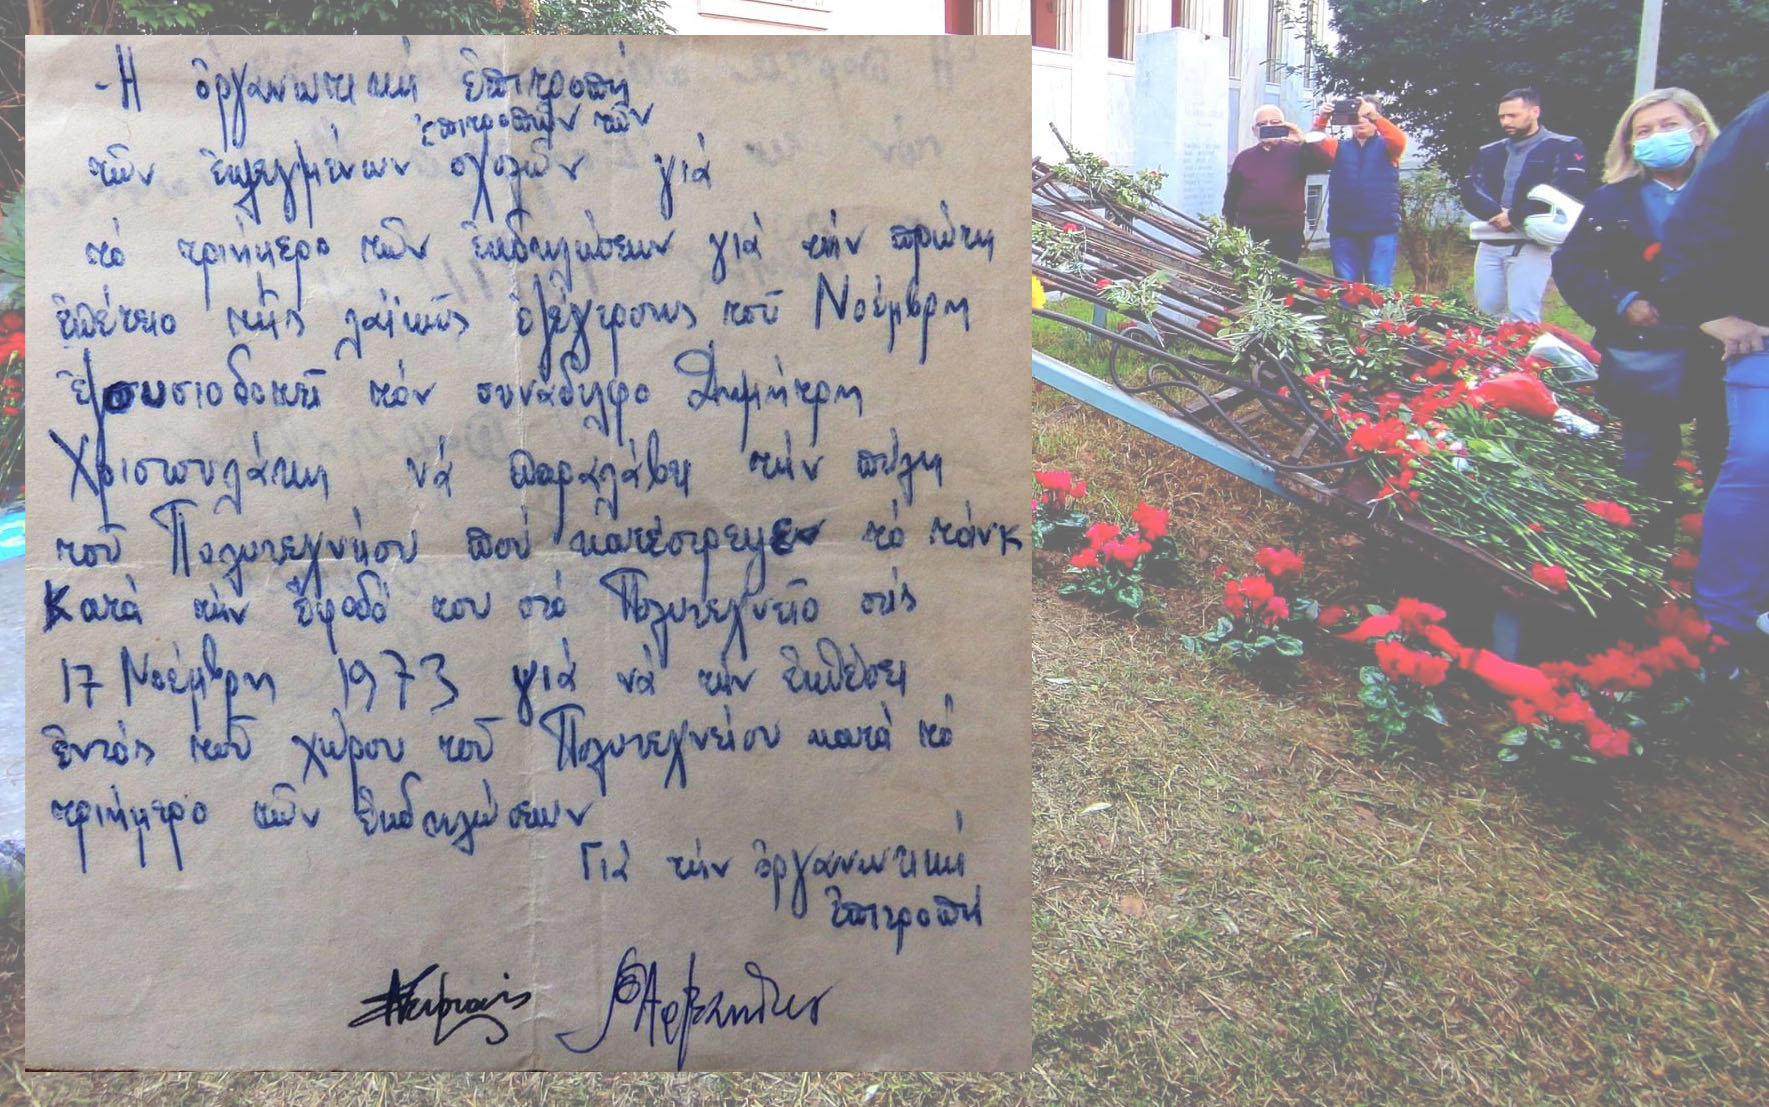 - Ἡ ὀργανωτική ἐπιτροπή
ἐπιτροπῶν τῶν
τῶν ἐκλεγμένων σχολῶν γιά
τό τριήμερο τῶν ἐκδηλώσεων γιά τήν πρώτη
ἐπέτειο τῆς λαϊκῆς ἐξέγερσης τοῦ Νοέμβρη
ἐξουσιοδοτεῖ τόν συνάδελφο Δημήτρη
Χριστουλάκη νά παραλάβη τήν πύλη
τοῦ Πολυτεχνείου πού κατέστρεψεν τό τάνκ
Κατά τήν ἔφοδό του στό Πολυτεχνεῖο στίς
17 Νοέμβρη 1973 γιά νά τήν ἐκθέσει
ἐντός τοῦ χώρου τοῦ Πολυτεχνείου κατά τό
τριήμερο τῶν ἐκδηλώσεων
Γιά τήν ὀργανωτική
ἐπιτροπή